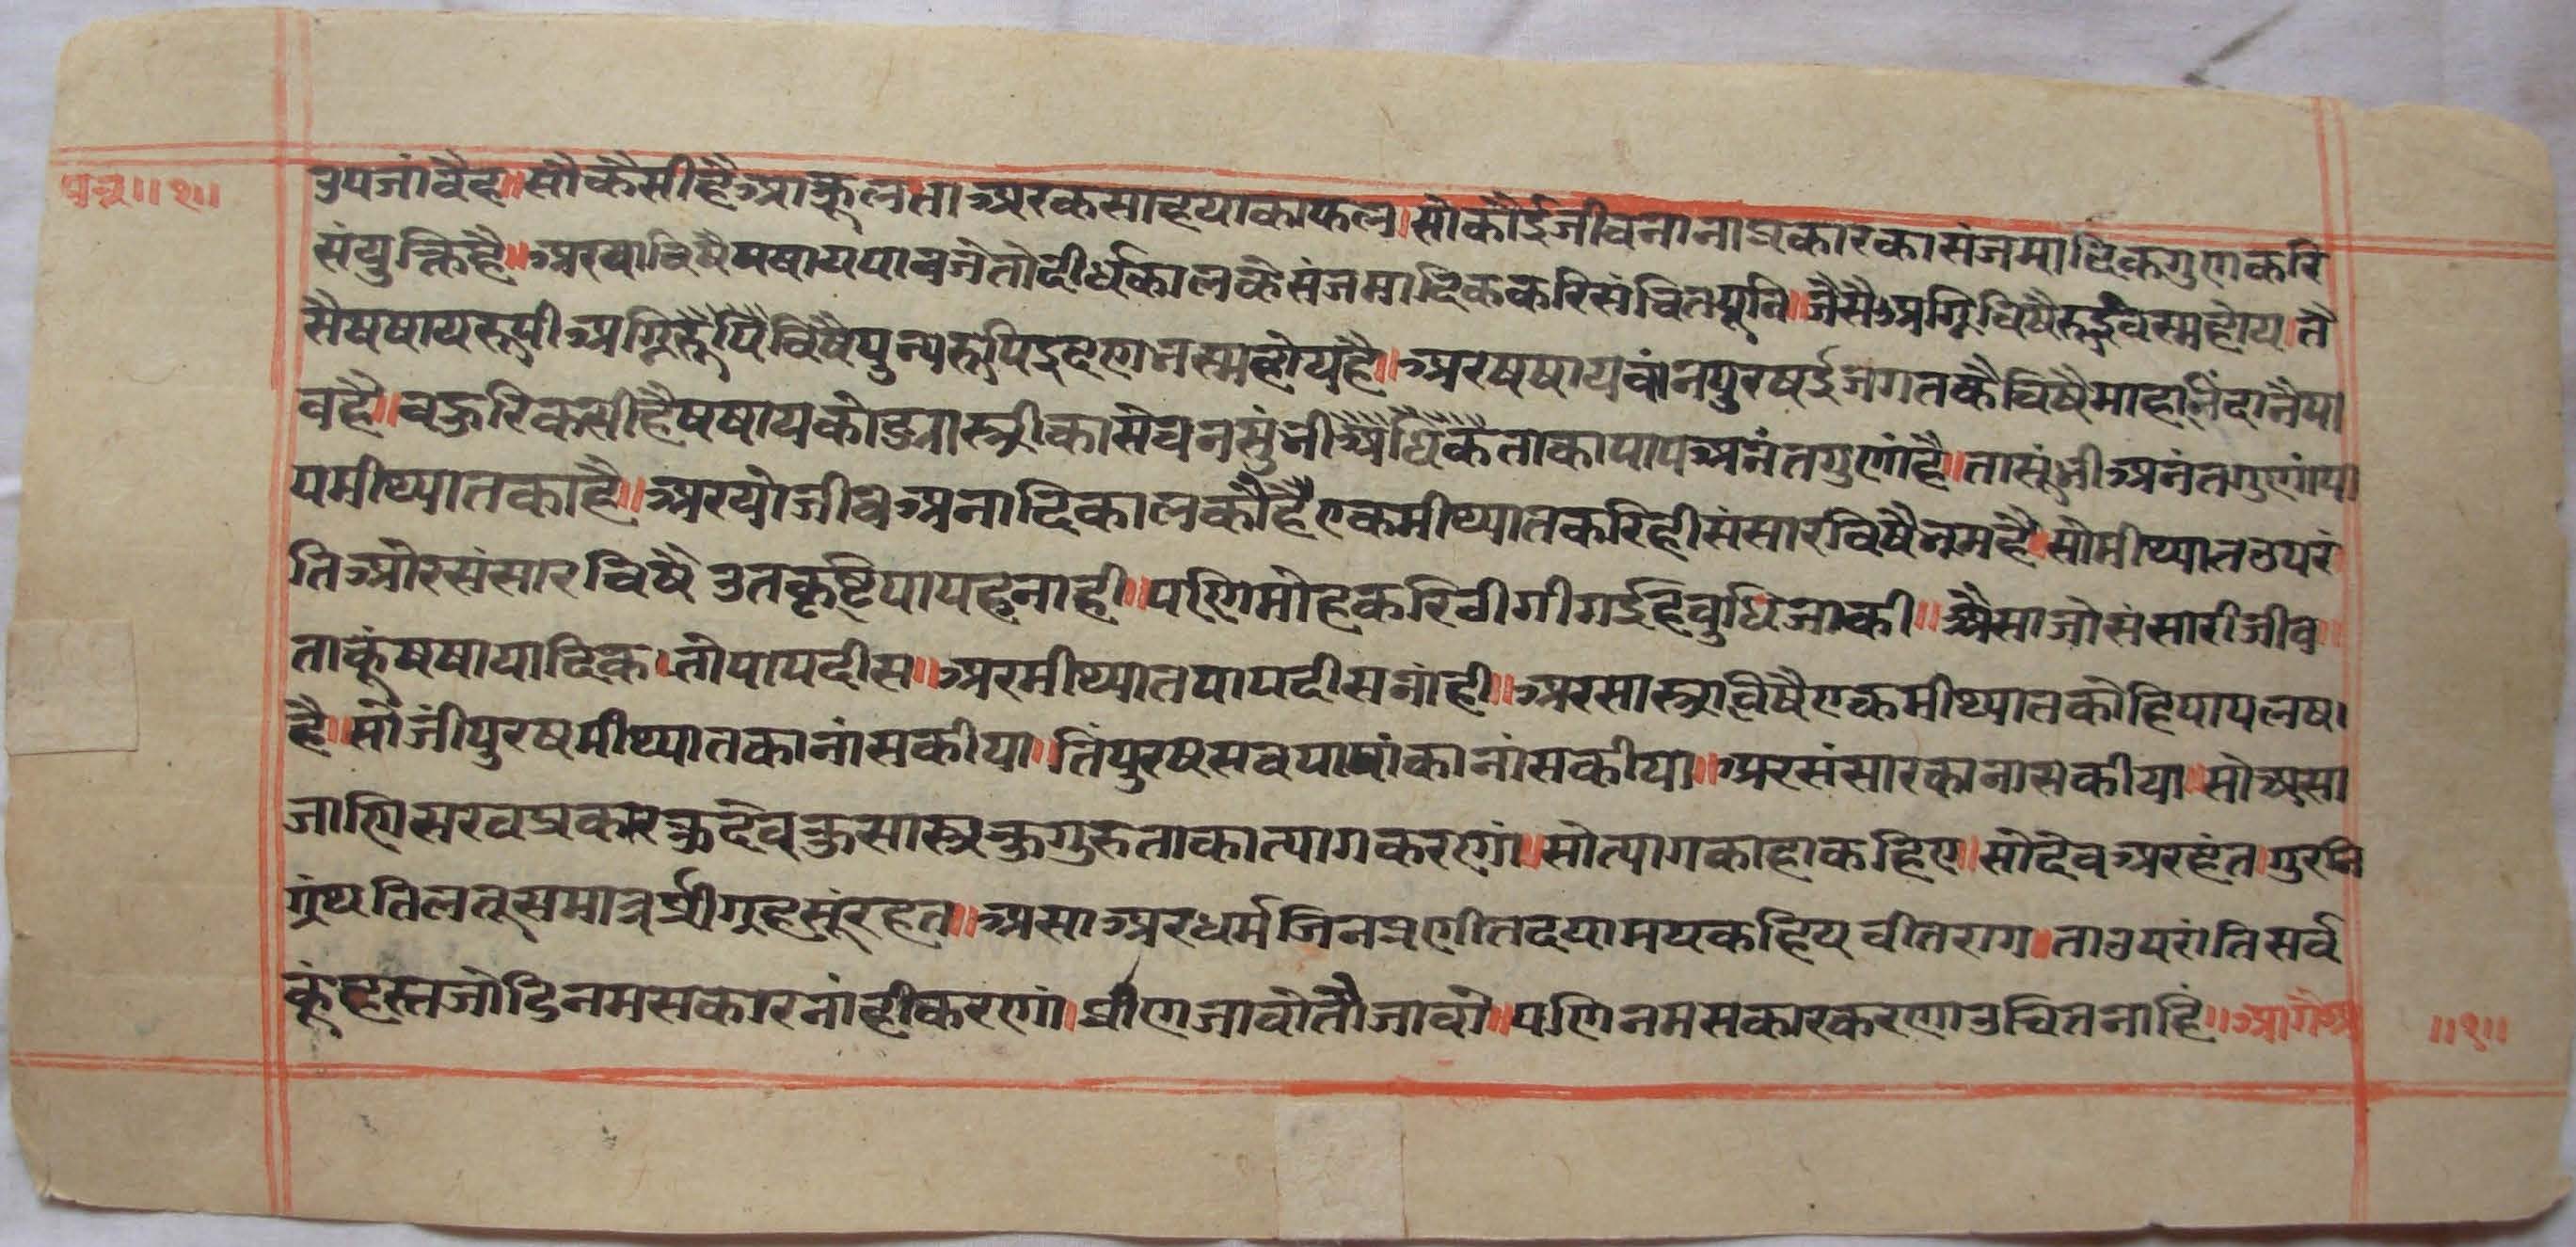 उपजांवैह॥सौकैसीहैआकुलताअरकसाहयाकाफल॥सौकोईजीवनानाप्रकारकासंजमादिकगुणकरि
संयुक्तिहै॥अरयाविषैमषायपावजेतोदीर्घकालकेसंजमादिककरिसंचितपूनि॥जैसैअग्निविषैरूईवस्महोय॥तै
सैषषायरूपीअग्निविषैपुन्यरूपिइंधणनस्महोयहै॥अरषषायवांनपुरषईजगतकैविषैमाहानिंदानैपा
वहै॥वहुरिकसीहैषषायकोडनास्त्रीकासेवनसुंनीअधिकताकापापअनंतगुणांहै॥तासूंनीअनंतगुणांपा
पमीथ्यातकाहै॥अरयोजीवअनादिकालकोहैएकमीथ्यातकरिहीसंसारविषैनमहै॥सोमीथ्यातउपरं
तिओरसंसारविषै उतकृष्टिपापहनाही॥पणिमोहकरिठीगीगईहवुधिजाकी॥अैसाजोसंसारीजीव॥
ताकूंषषायादिक॥तोपापदीस॥अरमीथ्यातपापदीसनांही॥अरसास्त्रविषैएकमीथ्यातकोहिपापलषा
है॥सोजींपुरषमीथ्यातकानांसकीया॥तिंपुरषसवपापांकानांसकीया॥अरसंसारकानासकीया॥सोअसा
जाणिसरवप्रकारकुदेवकुसास्त्रकुगुरुताकात्यागकरणां॥सोत्यागकाहाकहिए॥सोदेवअरहंत॥गुरनि
ग्रंथतिलतूसमात्रप्रीगृहसूंरहत॥असाअरधर्मजिनप्रणीतदयामयकहिय् वीतराग॥ताउपरांतिसर्व
कूंहस्तजोडिनमसकारनांहीकरणां॥प्रांणजावोतौजावो॥पणिनमसकारकरणाउचितनाहिं॥आगैअ
॥१॥